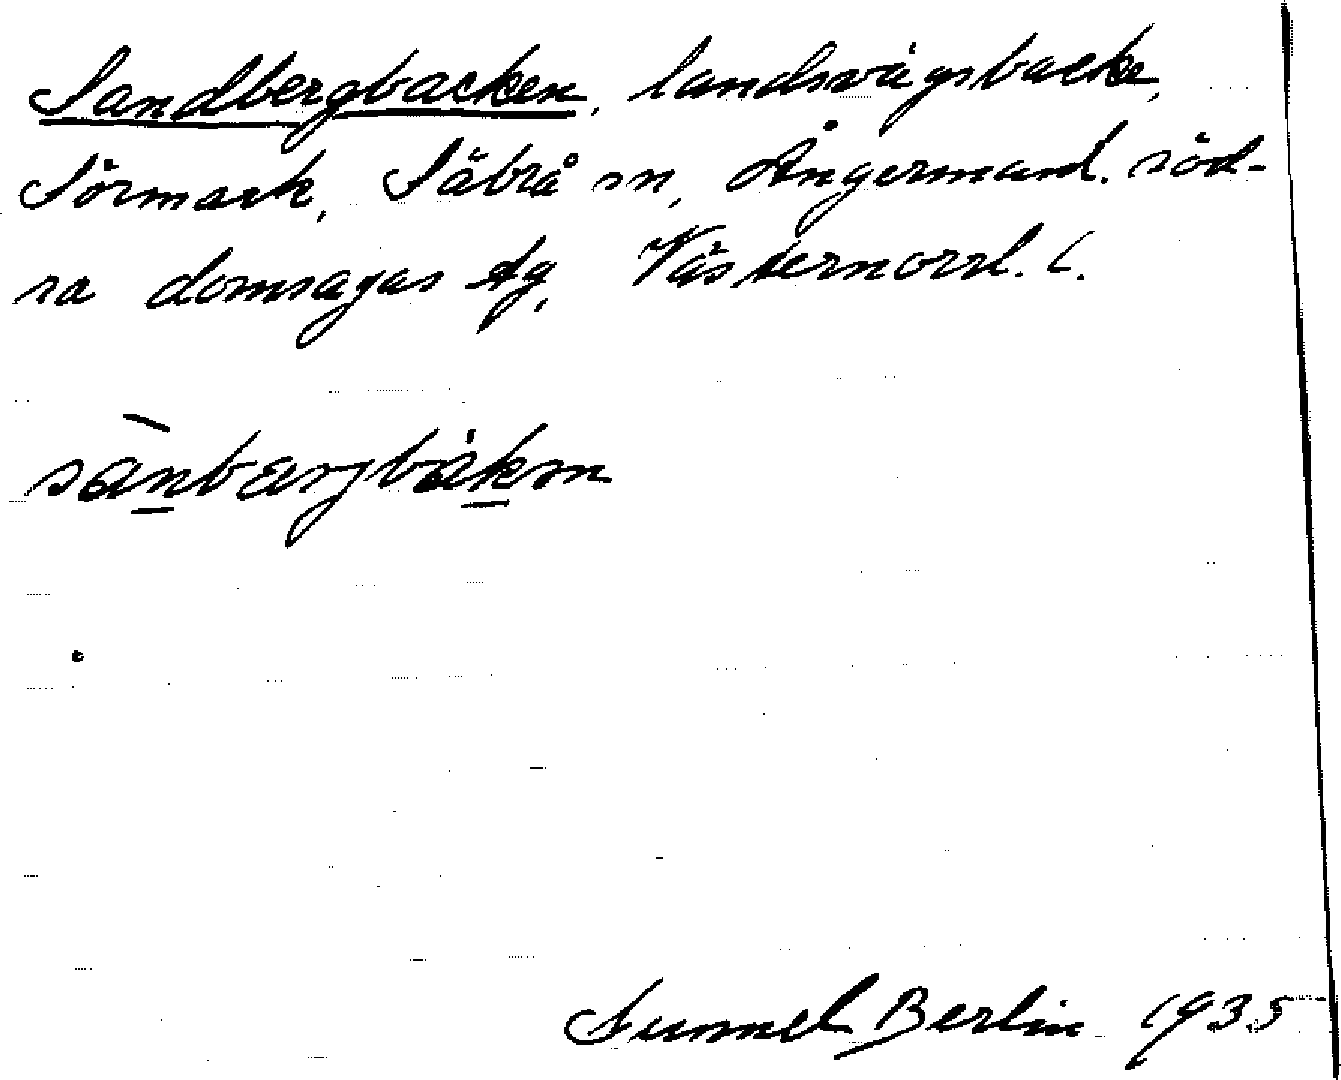 Sandbergbacken, landsvägsbacke,
Sörmark, Säbrå sn, Ångermanl. söd-
ra domsagas tg, Västernorrl. l.
sànbarjbàkm
Gunnel Berlin 1935